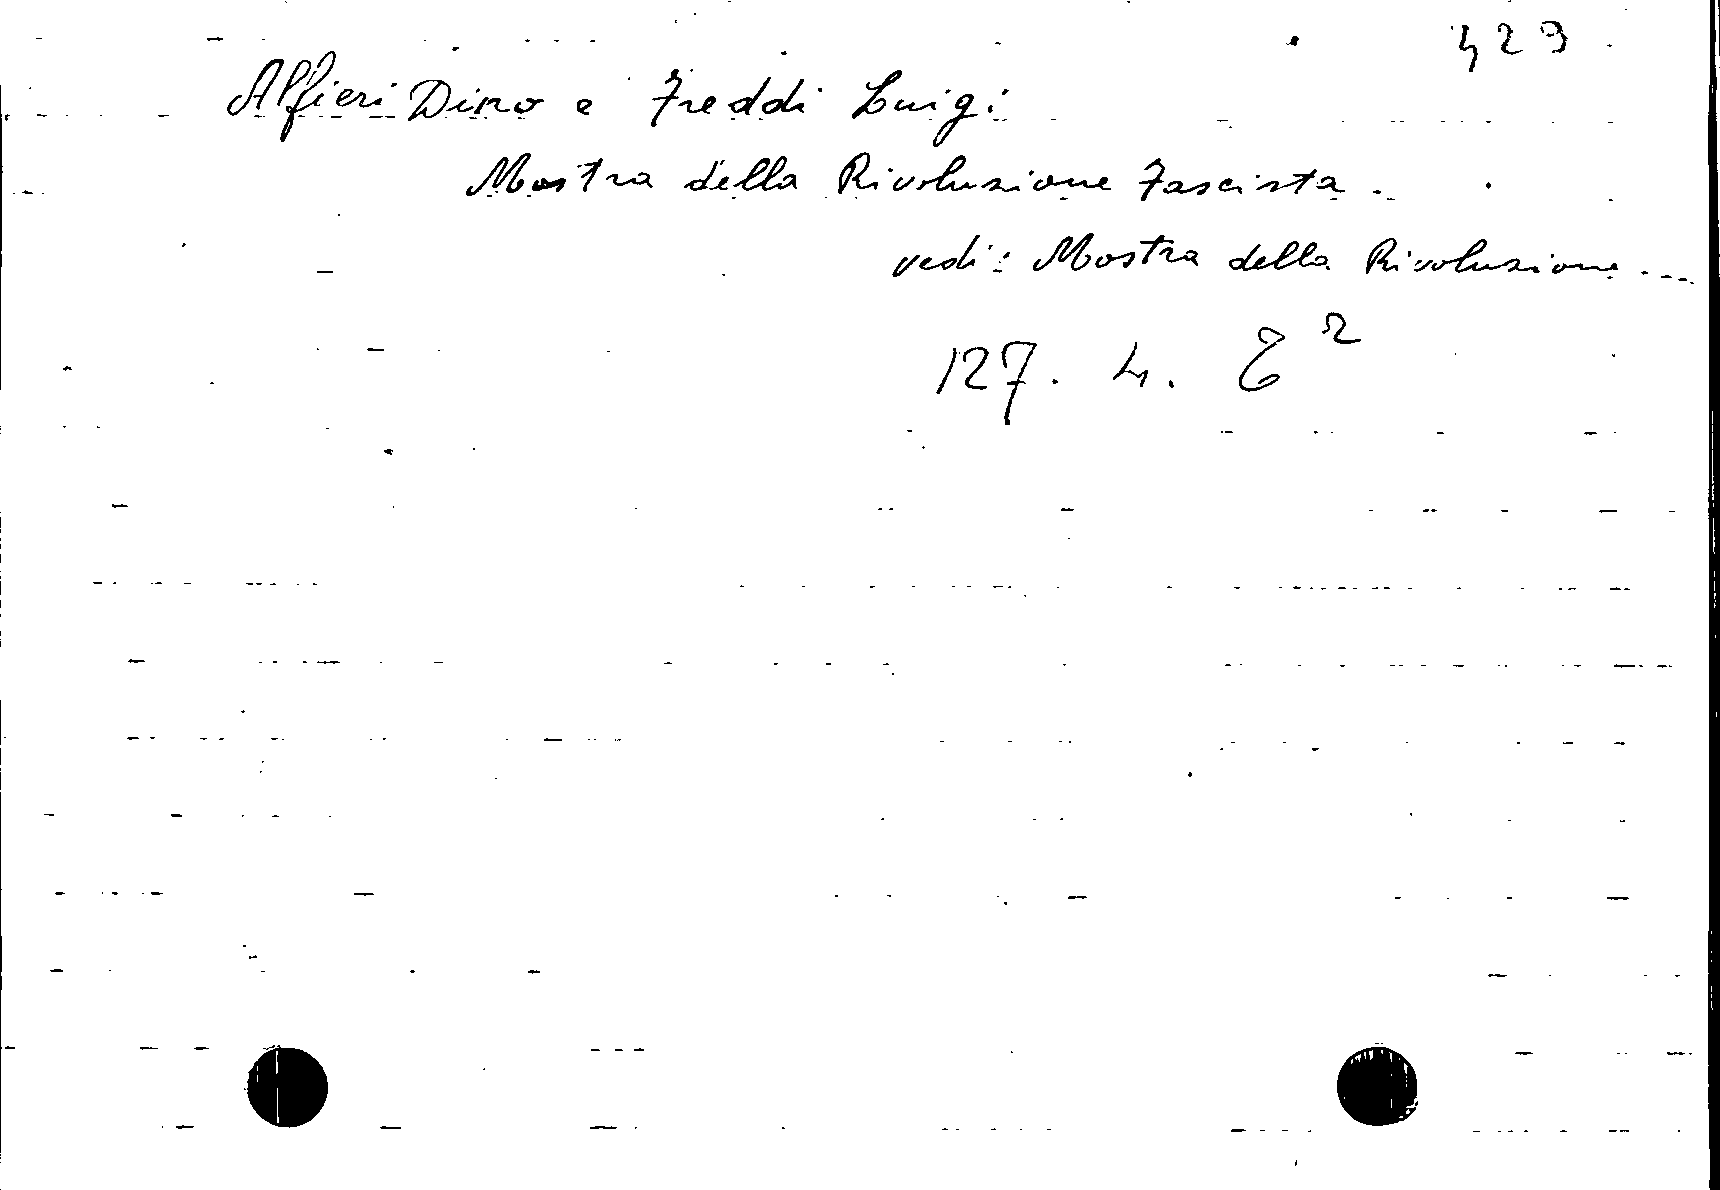 429
Alfieri Dino e Freddi Luigi
Mostra della Rivoluzione Fascista.
vedi: Mostra della Rivoluzione...
127. 4. &²